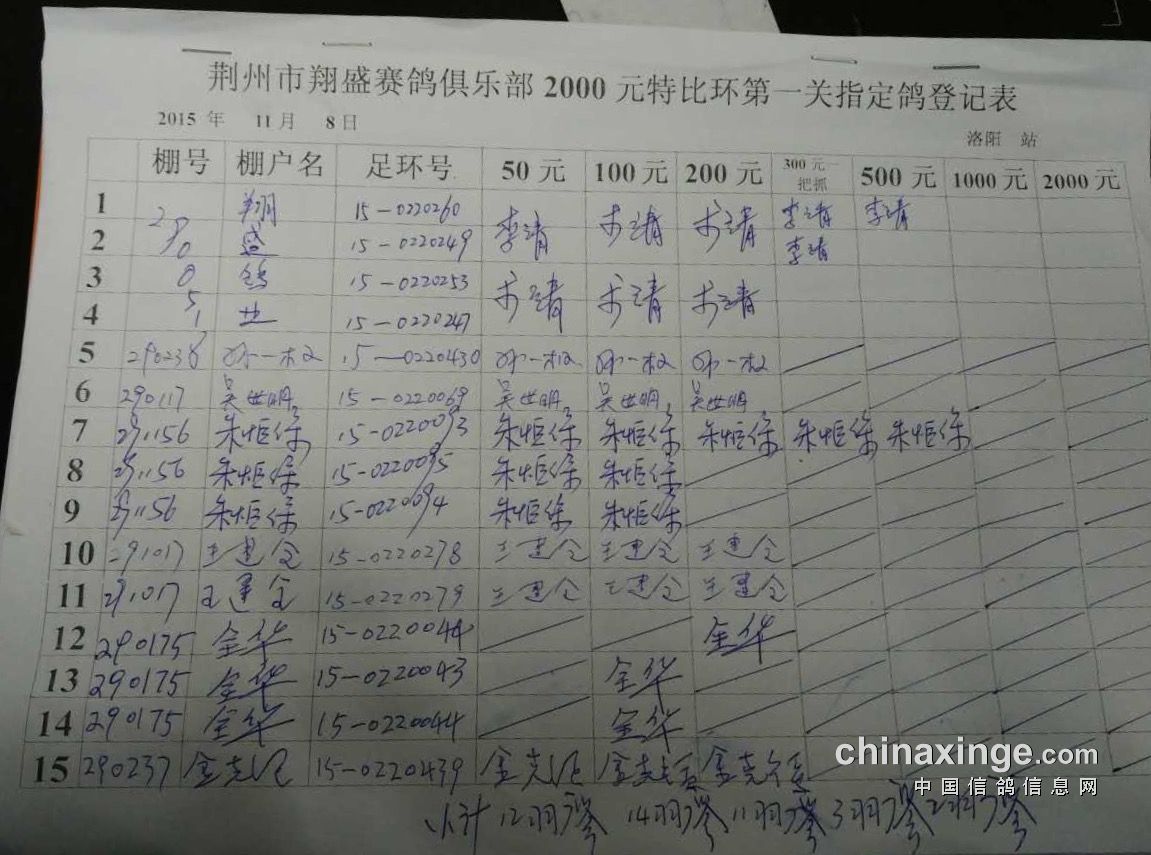 荆州市翔盛赛鸽俱乐部 2000 元特比环第一关指定鸽登记表
2015 年 11 月 8 日
洛阳 站
棚号 棚户名 足环号 50 元 100 元 200 元 300 元一把抓 500 元 1000 元 2000 元
1 翔 15-0220260 李靖 李靖 李靖 李靖 李靖
2 盛 15-0220249 李靖
3 鸽 15-0220253 李靖 李靖 李靖
4 业 15-0220247
5 290238 15-0220430
6 290117 吴世明 15-0220069 吴世明 吴世明 吴世明
7 291156 朱恒保 15-0220093 朱恒保 朱恒保 朱恒保 朱恒保 朱恒保
8 291156 朱恒保 15-0220095 朱恒保 朱恒保
9 291156 朱恒保 15-0220094 朱恒保 朱恒保
10 291017 王建全 15-0220278 王建全 王建全 王建全
11 291017 王建全 15-0220279 王建全 王建全 王建全
12 290175 全华 15-0220044 全华
13 290175 全华 15-0220043 全华
14 290175 全华 15-0220044 全华
15 290237 15-0220439
小计 12羽 14羽 11羽 3羽 2羽
chinaxinge.com
中国信鸽信息网